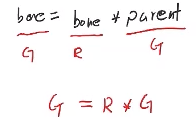 bone = bone * parent
G R G
G = R * G